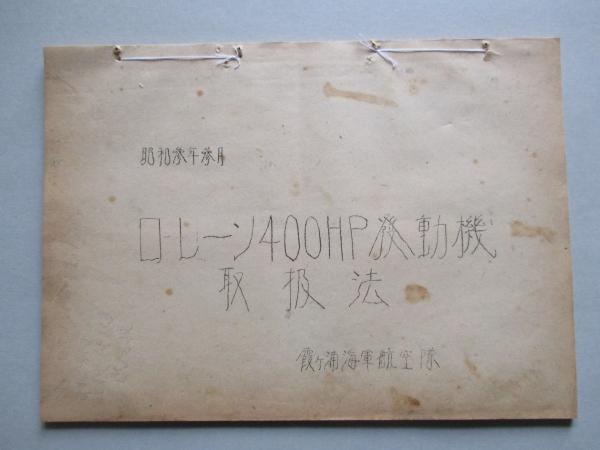 昭和参年参月
ローレーン400HP発動機
取扱法
霞ヶ浦海軍航空隊